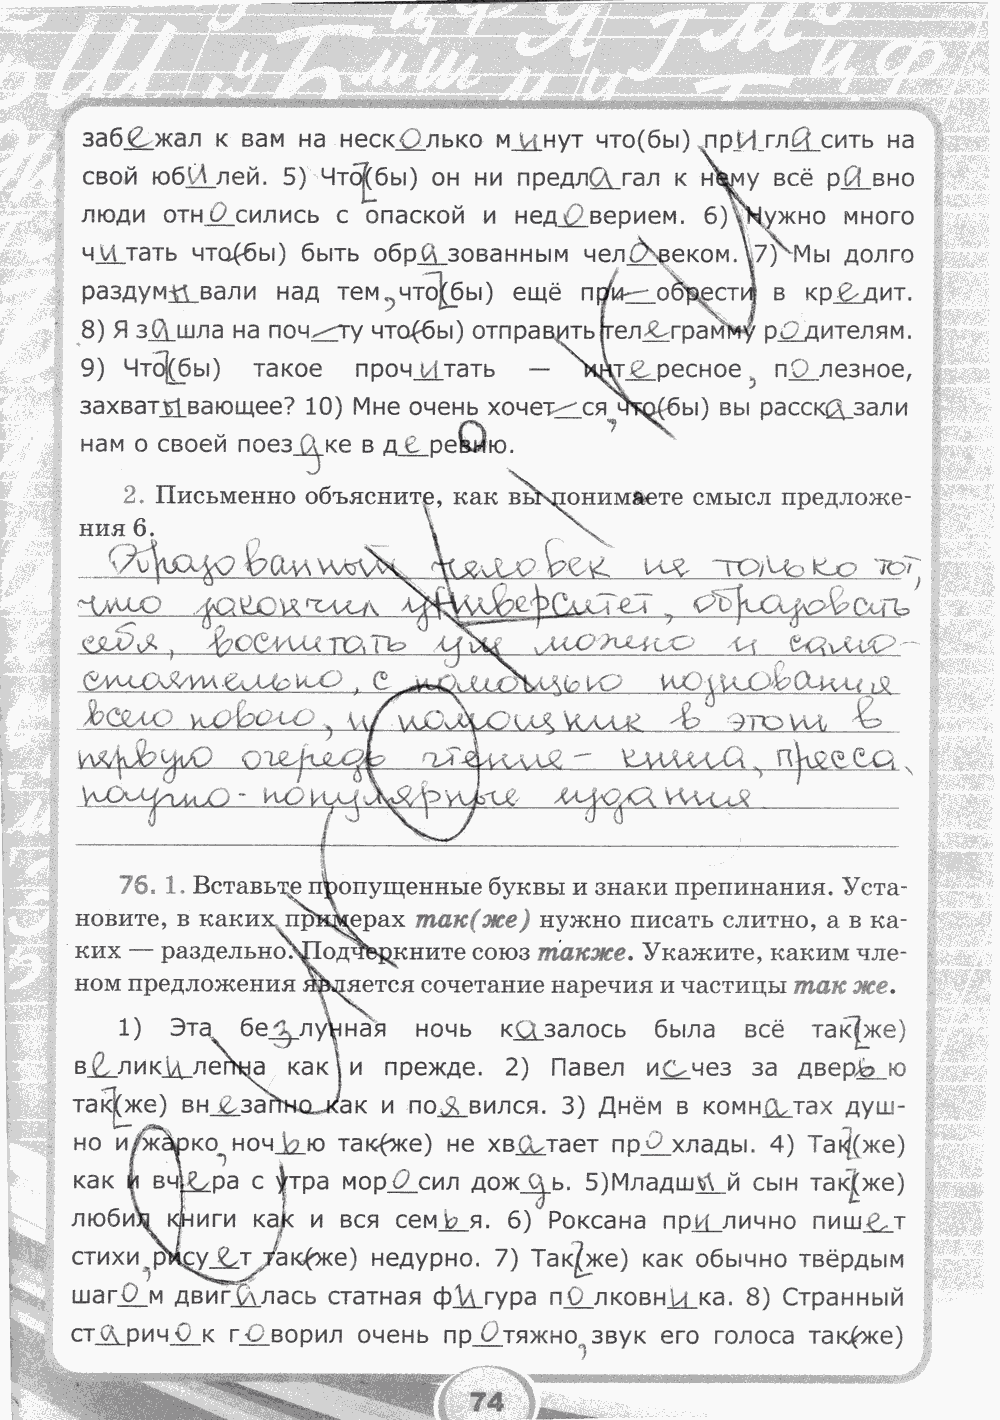 забежал к вам на несколько минут что(бы) пригласить на
свой юбилей. 5) Что(бы) он ни предлагал к нему всё равно
люди относились с опаской и недоверием. 6) Нужно много
читать что(бы) быть образованным человеком. 7) Мы долго
раздумывали над тем, что(бы) ещё при__обрести в кредит.
8) Я зашла на поч__ту что(бы) отправить телеграмму родителям.
9) Что(бы) такое прочитать — интересное, полезное,
захватывающее? 10) Мне очень хочет__ся, что(бы) вы рассказали
нам о своей поездке в деревню.
2. Письменно объясните, как вы понимаете смысл предложе-
ния 6.
Образованный человек не только тот,
что закончил университет, образовать
себя, воспитать ум можно и само-
стоятельно, с помощью познования
всего нового, и помощник в этом в
первую очередь чтение - книга, пресса,
научно-популярные издания
76. 1. Вставьте пропущенные буквы и знаки препинания. Уста-
новите, в каких примерах так(же) нужно писать слитно, а в ка-
ких — раздельно. Подчеркните союз также. Укажите, каким чле-
ном предложения является сочетание наречия и частицы так же.
1) Эта безлунная ночь казалось была всё так(же)
великилепна как и прежде. 2) Павел исчез за дверью
так(же) внезапно как и появился. 3) Днём в комнатах душ-
но и жарко, ночью так(же) не хватает прохлады. 4) Так(же)
как и вчера с утра моросил дождь. 5)Младший сын так(же)
любил книги как и вся семья. 6) Роксана прилично пишет
стихи, рисует так(же) недурно. 7) Так(же) как обычно твёрдым
шагом двигалась статная фигура полковника. 8) Странный
старичок говорил очень протяжно, звук его голоса так(же)
74